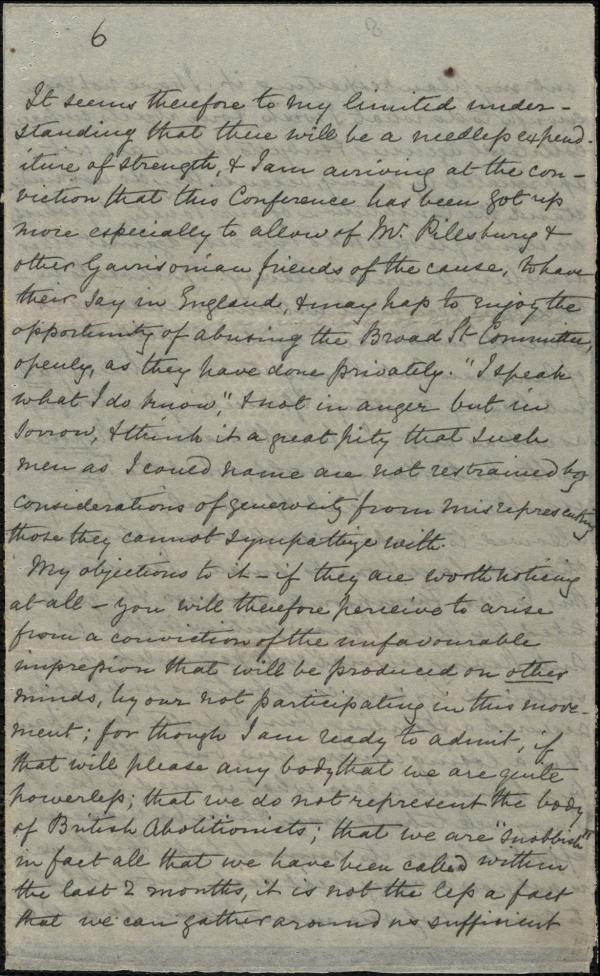 6
It seems therefore to my limited under-
standing that there will be a needless expend-
iture of strength, & I am arriving at the con-
viction that this Conference has been got up
more especially to allow of Mr. Pillsbury &
other Garrisonian friends of the cause, to have
their say in England, & may hap to enjoy the
opportunity of abusing the Broad St Committee,
openly, as they have done privately. "I speak
what I do know", & not in anger but in
sorrow, & think it a great pity that such
men as I could name are not restrained by
considerations of generosity from misrepresenting
those they cannot sympathize with.
My objections to it - if they are worth noticing
at all - you will therefore perceive to arise
from a conviction of the unfavourable
impression that will be produced on other
minds, by our not participating in this move-
ment; for though I am ready to admit, if
that will please any body that we are quite
powerless; that we do not represent the body
of British Abolitionists; that we are "snobbish"
in fact all that we have been called within
the last 2 months, it is not the less a fact
that we can gather around us sufficient